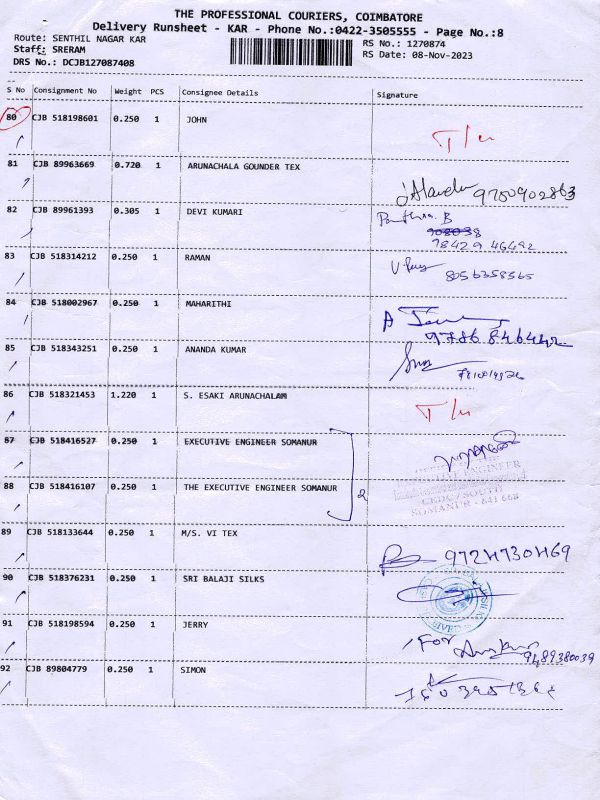 THE PROFESSIONAL COURIERS, COIMBATORE
Delivery Runsheet - KAR - Phone No.:0422-3505555 - Page No.:8
Route: SENTHIL NAGAR KAR
RS No.: 1270874
Staff: SRERAM
RS Date: 08-Nov-2023
DRS No.: DCJB127087408
S No Consignment No Weight PCS Consignee Details Signature
80 CJB 518198601 0.250 1 JOHN
81 CJB 89963669 0.720 1 ARUNACHALA GOUNDER TEX
9750902863
82 CJB 89961393 0.305 1 DEVI KUMARI
B
78429 46492
83 CJB 518314212 0.250 1 RAMAN
8056358565
84 CJB 518002967 0.250 1 MAHARITHI
9786846442
85 CJB 518343251 0.250 1 ANANDA KUMAR
86 CJB 518321453 1.220 1 S. ESAKI ARUNACHALAM
87 CJB 518416527 0.250 1 EXECUTIVE ENGINEER SOMANUR
88 CJB 518416107 0.250 1 THE EXECUTIVE ENGINEER SOMANUR 2
ENGINEER
SOUTH
SOMANUR - 641 668
89 CJB 518133644 0.250 1 M/S. VI TEX
9724730469
90 CJB 518376231 0.250 1 SRI BALAJI SILKS
91 CJB 518198594 0.250 1 JERRY
For
9489380039
92 CJB 89804779 0.250 1 SIMON